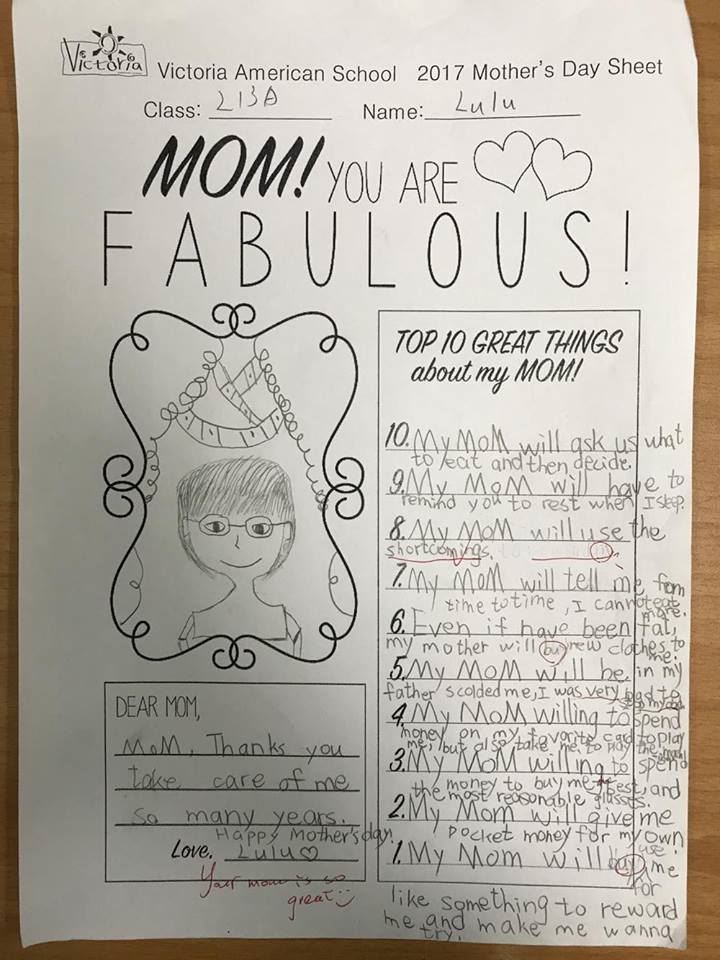 Victoria
Victoria American School 2017 Mother's Day Sheet
Class: L13A Name: Lulu
MOM! YOU ARE
FABULOUS!
TOP 10 GREAT THINGS
about my MOM!
10. My MoM will ask us what
to eat and then decide.
9. My MoM will have to
remind you to rest when I sleep.
8. My MoM will use the
shortcomings
7. My MoM will tell me from
time to time, I cannot eat
more.
6. Even if have been fat,
my mother will buy new clothes to
me.
5. My MoM will be in my
father scolded me, I was very
4. My MoM willing to spend
money on my favorite card to play
me, but also take me to play the
3. My MoM willing to spend
the money to buy me best, and
the most reasonable glasses.
2. My Mom will give me
pocket money for my own
use.
1. My Mom will buy me
for
like something to reward
me and make me wanna
try.
DEAR MOM,
MoM, Thanks you
take care of me
so many years.
Happy Mother's day!
Love, Lulu♡
Your mom is so
great :)